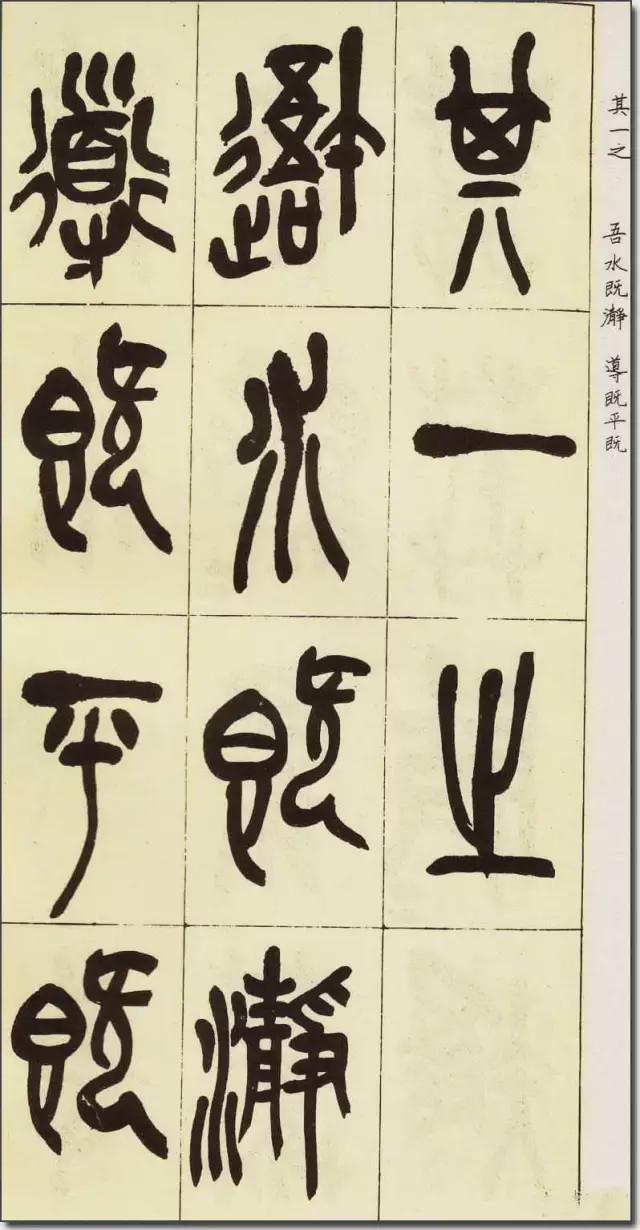 其一之 吾水既瀞 導既平既
其一之
吾水既瀞
導既平既